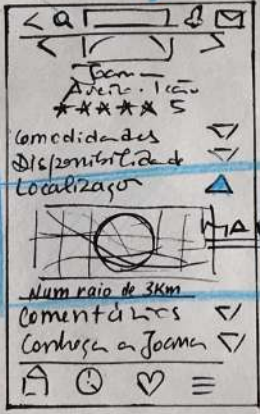 Joana
★★★★★ 5
Comodidades
Disponibilidade
Localização
Num raio de 3Km
Comentários
Conheça a Joana